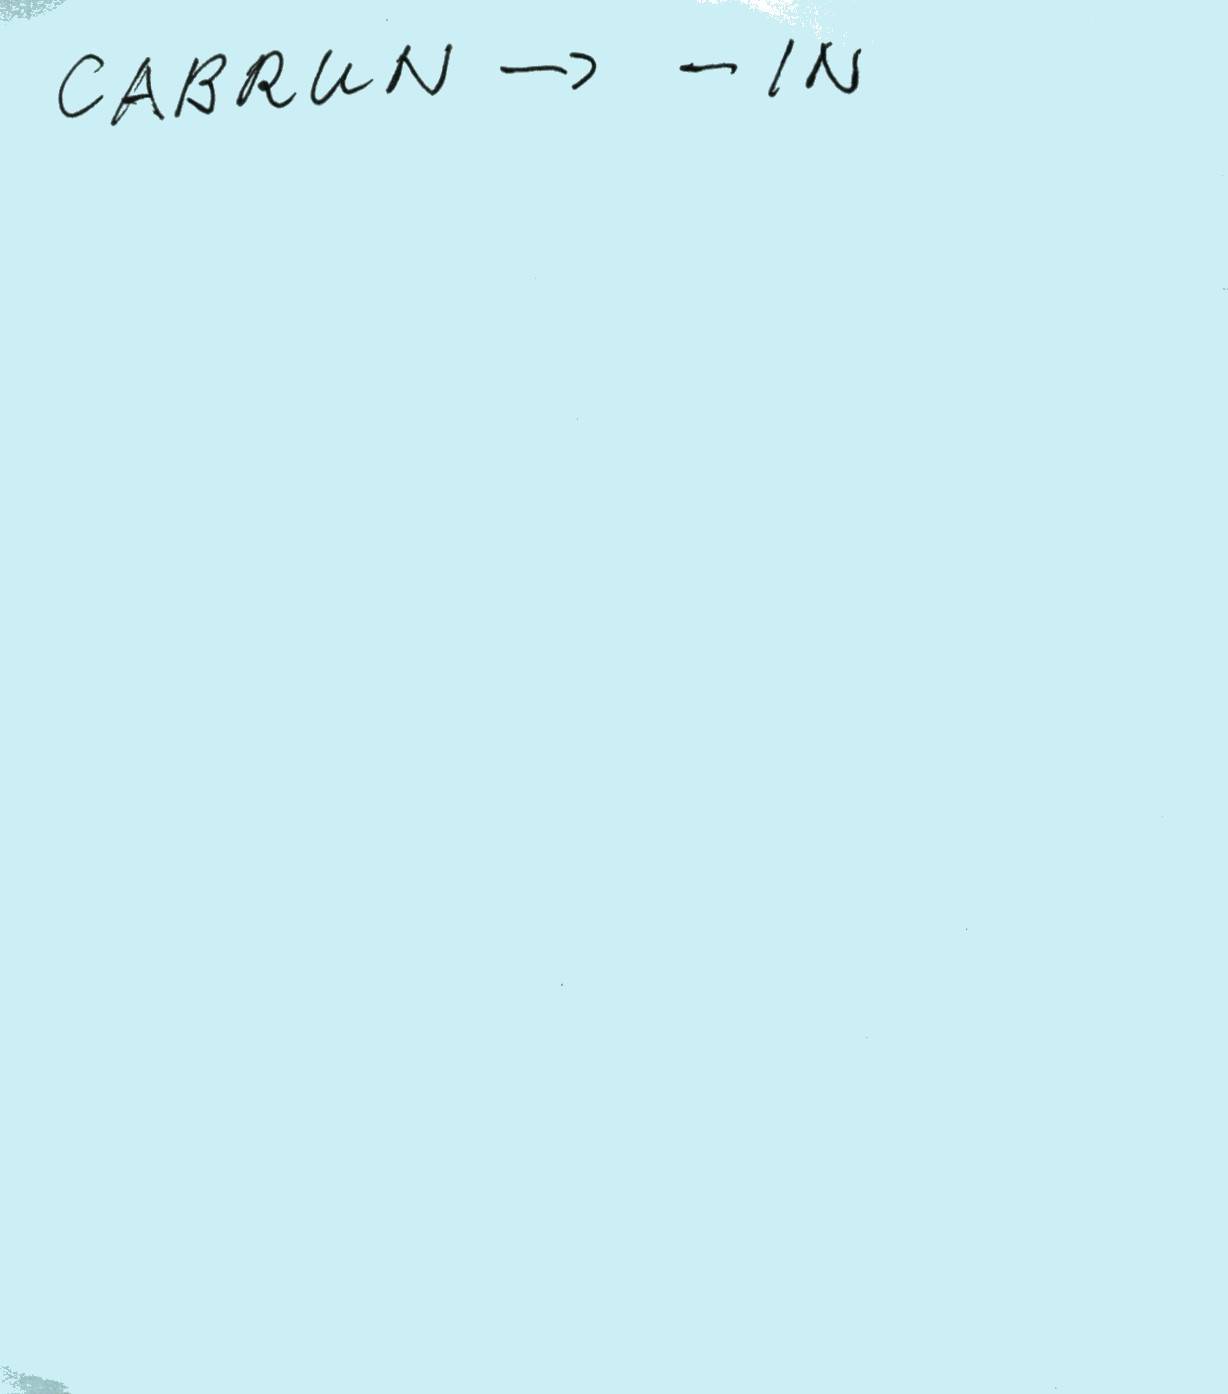 CABRUN → -IN